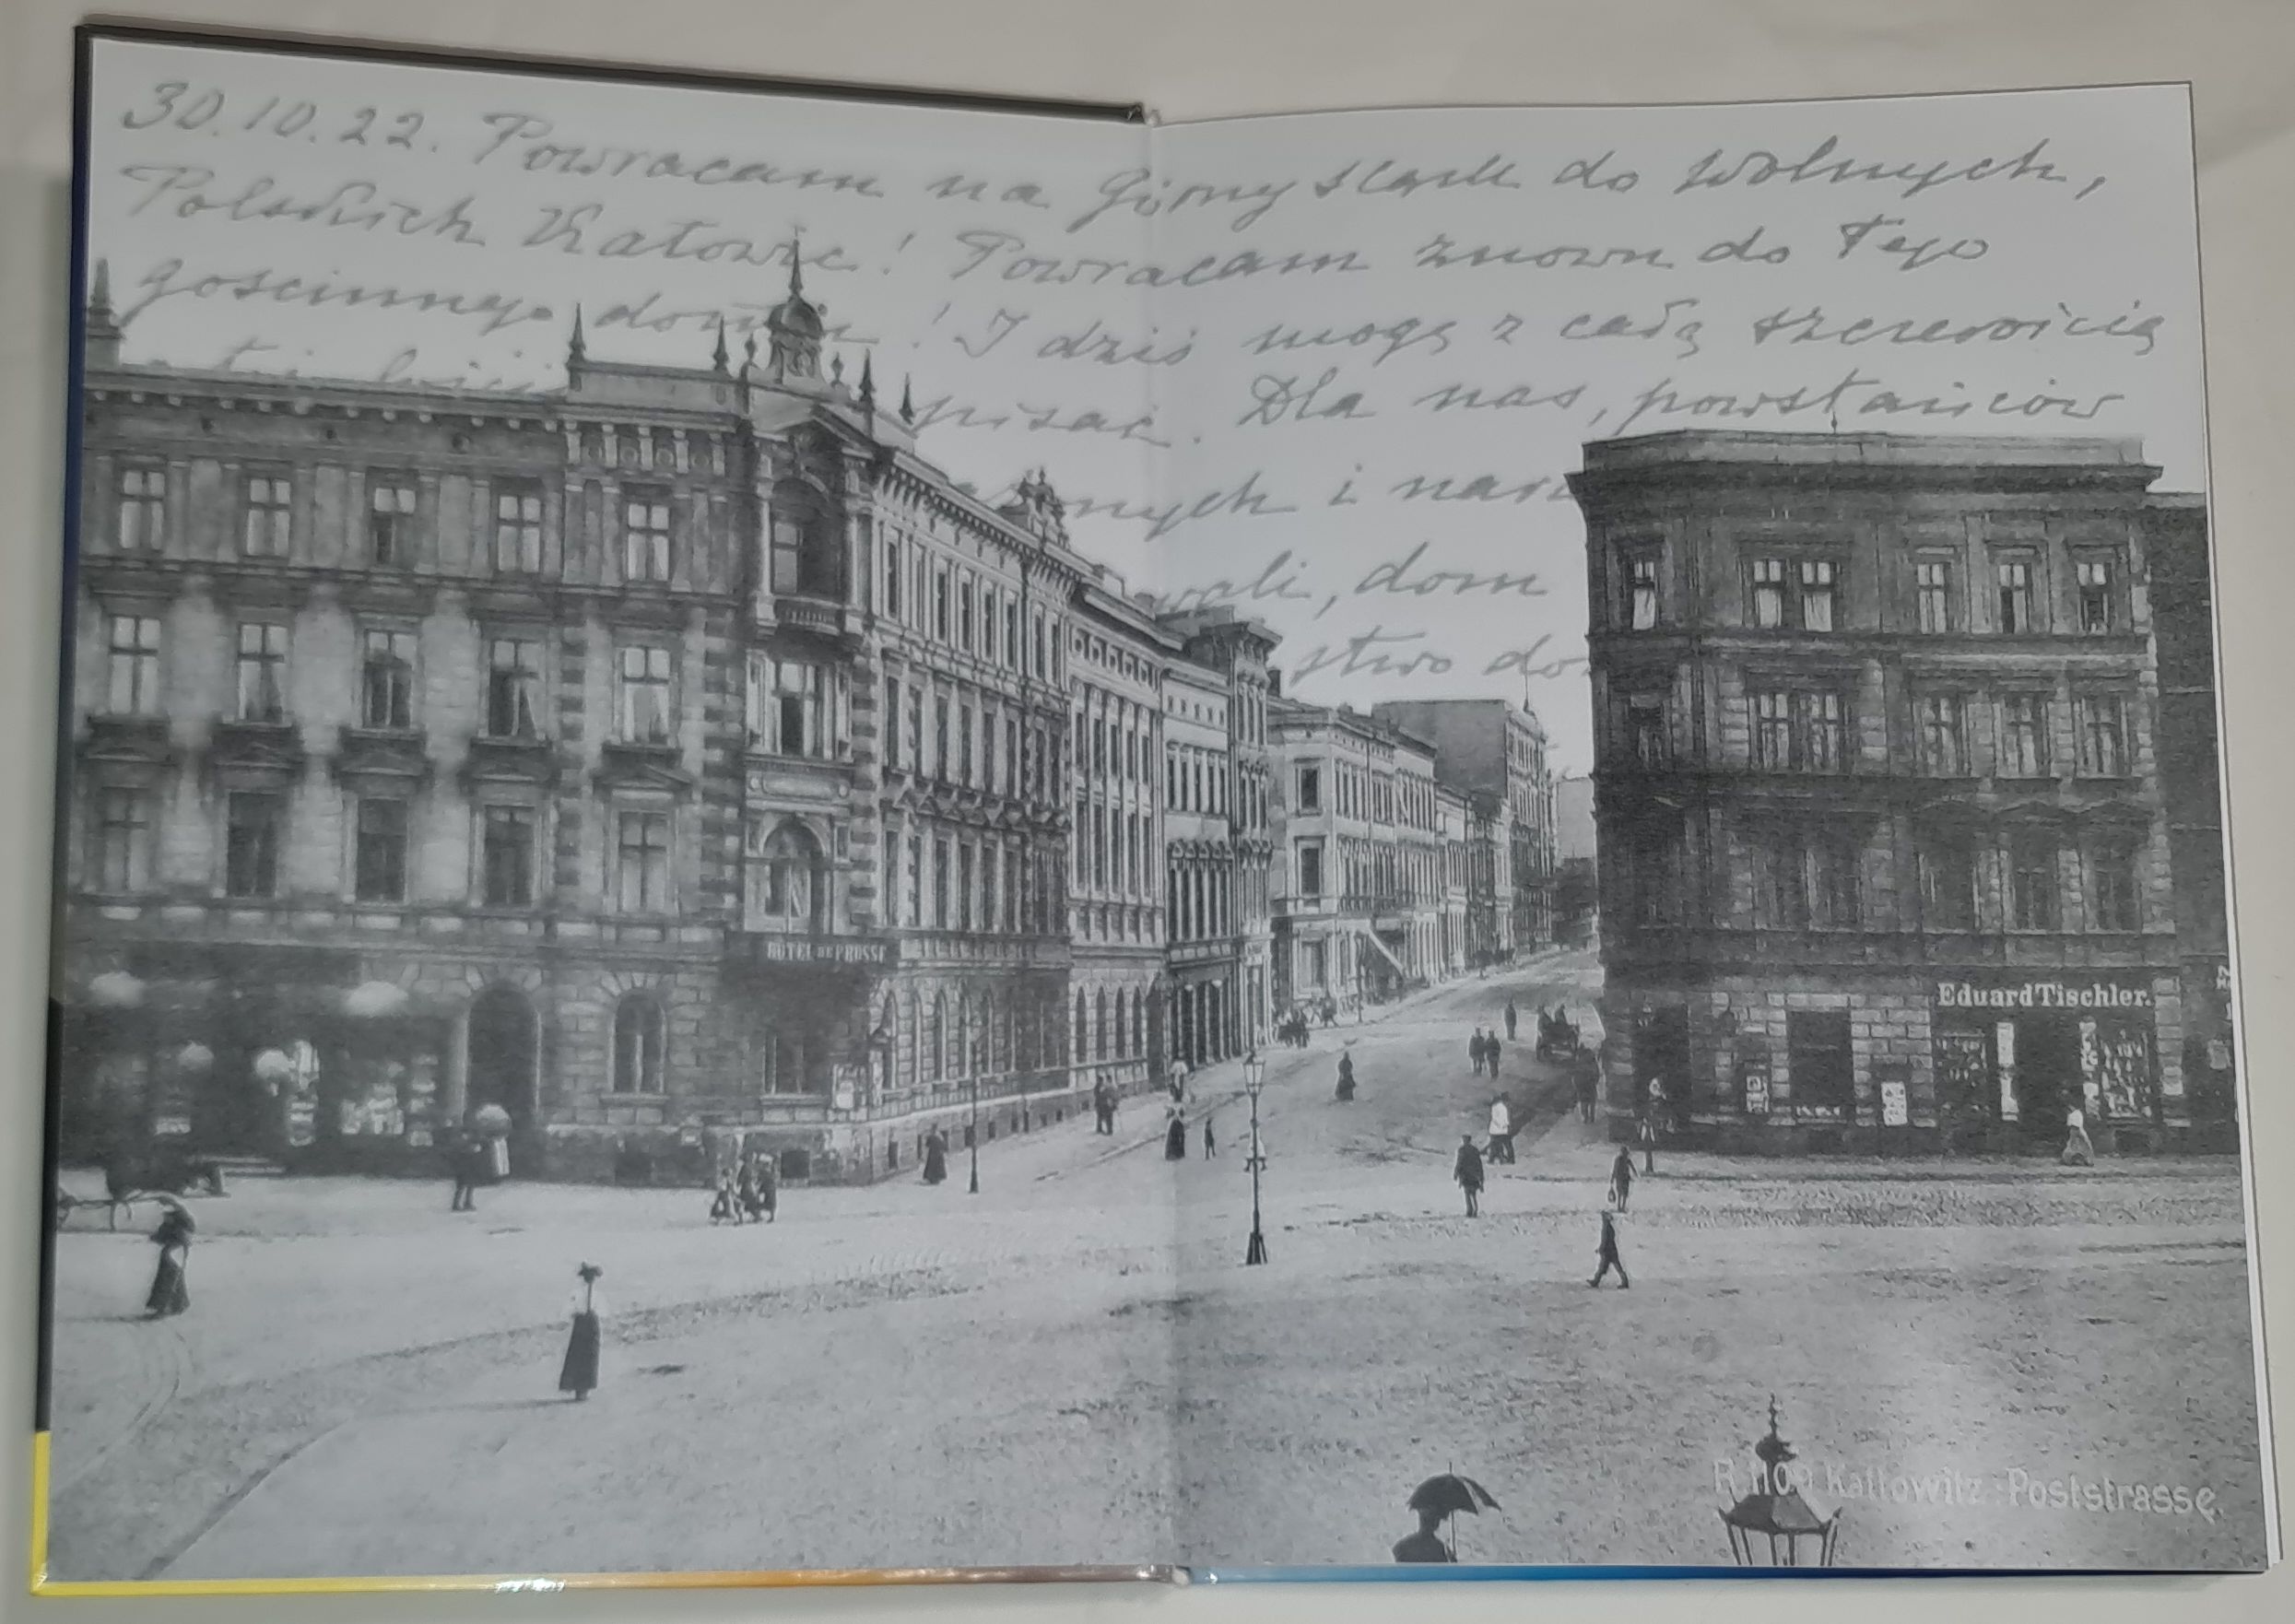 30.10.22. Powracam na Górny Śląsk do wolnych,
Polskich Katowic! Powracam znowu do Tego
gościnnego domu! I dziś mogę z całą szczerością
pisać. Dla nas, powstańców
nych i
wali, dom
stwo do
HOTEL DE PRUSSE
Eduard Tischler.
R 1109 Kattowitz: Poststrasse.